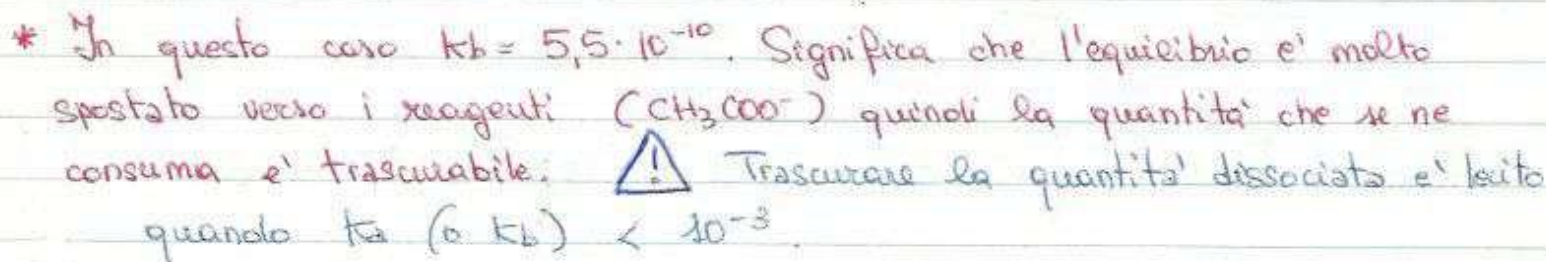 * In questo caso Kb = 5,5 · 10⁻¹⁰. Significa che l'equilibrio e' molto
spostato verso i reagenti (CH₃COO⁻) quindi la quantita' che se ne
consuma e' trascurabile. ⚠ Trascurare la quantita' dissociata e' lecito
quando Ka (o Kb) < 10⁻³.